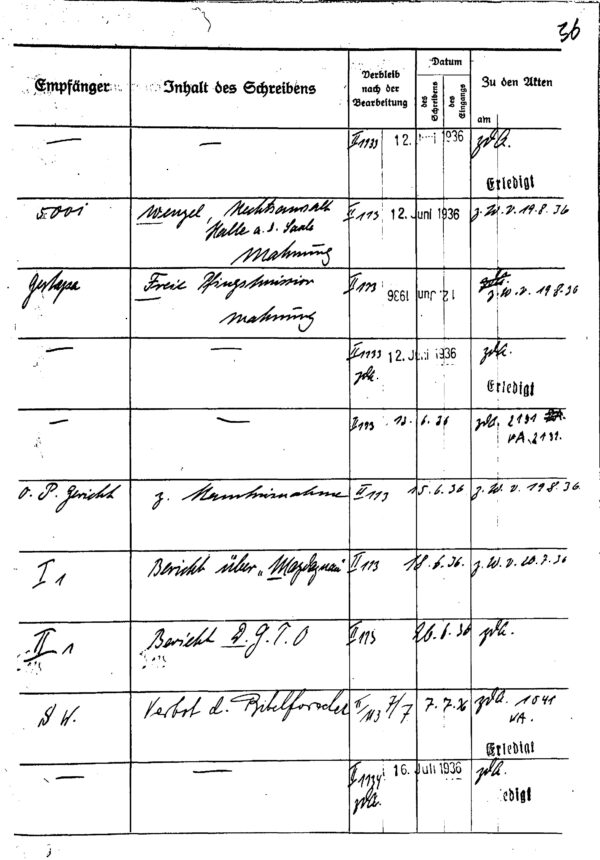 36
Empfänger Inhalt des Schreibens Verbleib nach der Bearbeitung Datum des Schreibens des Eingangs Zu den Akten am
— — II 1133 12. Juni 1936 zdA.
Erledigt
Wenzel, Rechtsanwalt II 113 12. Juni 1936 z.W.v. 19.8.36
Halle a.d. Saale
Mahnung
Gestapa Freie Pfingstmission II 113 12. Jun 1936 z.W.v. 19.8.36
Mahnung
— — II 1133 12. Juni 1936 zdA.
zdA. Erledigt
— — II 113 13.6.36 zdA. 2131
VA. 2131.
O. P. Gericht z. II 113 15.6.36 z.W.v. 19.8.36
I 1 Bericht über „Mazdaznan" II 113 18.6.36. z.W.v. 20.7.36
II 1 Bericht D.G.T.O II 113 26.6.36 zdA.
Verbot d. Bibelforscher II/113 7/7 7.7.36 zdA. 1041
VA.
Erledigt
— — II 1134 16. Juli 1936 zdA.
zdA. edigt